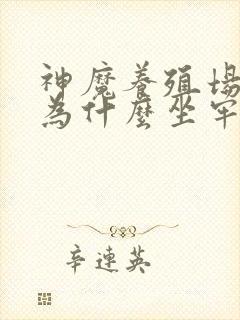 神魔養殖場
為什麼坐牢
辛連英